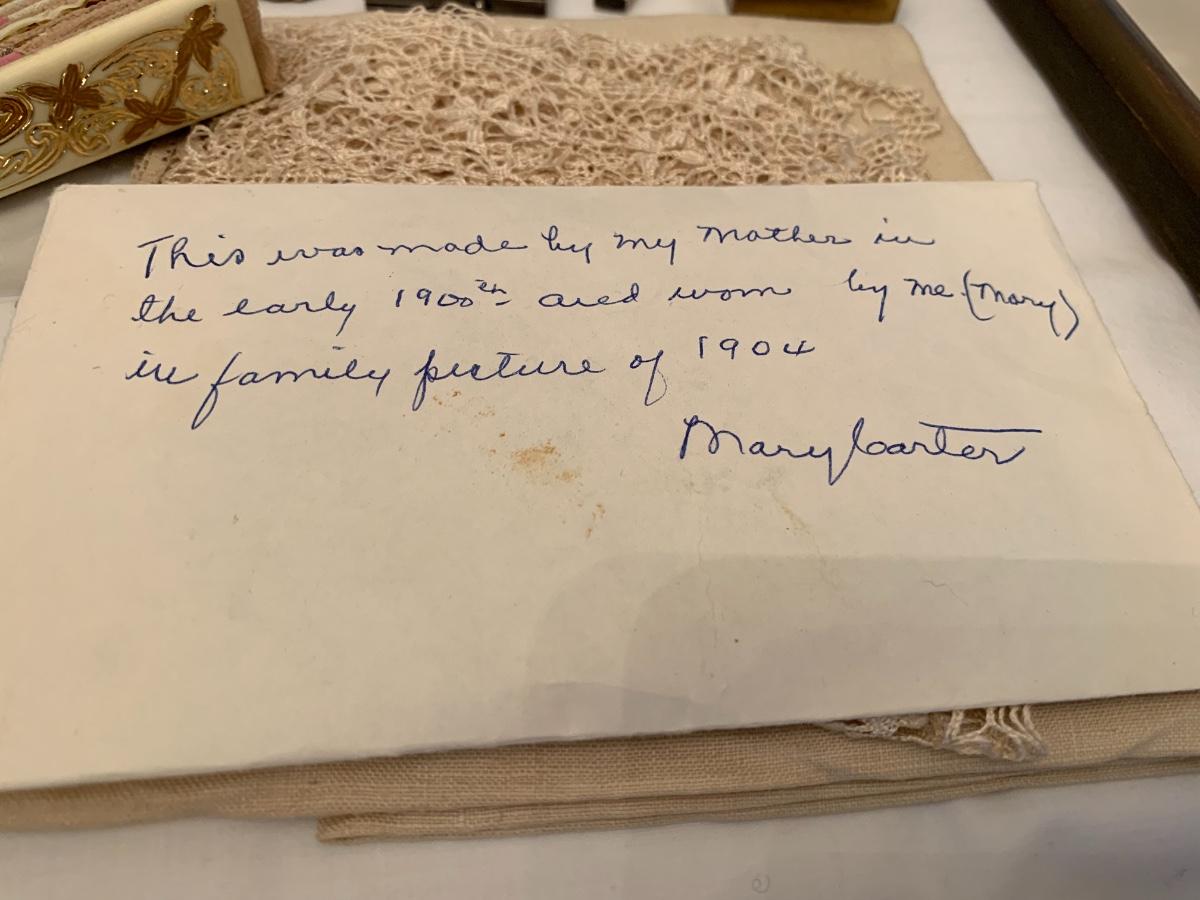 This was made by my mother in
the early 1900en and worn by me (Mary)
in family picture of 1904
Mary Carter